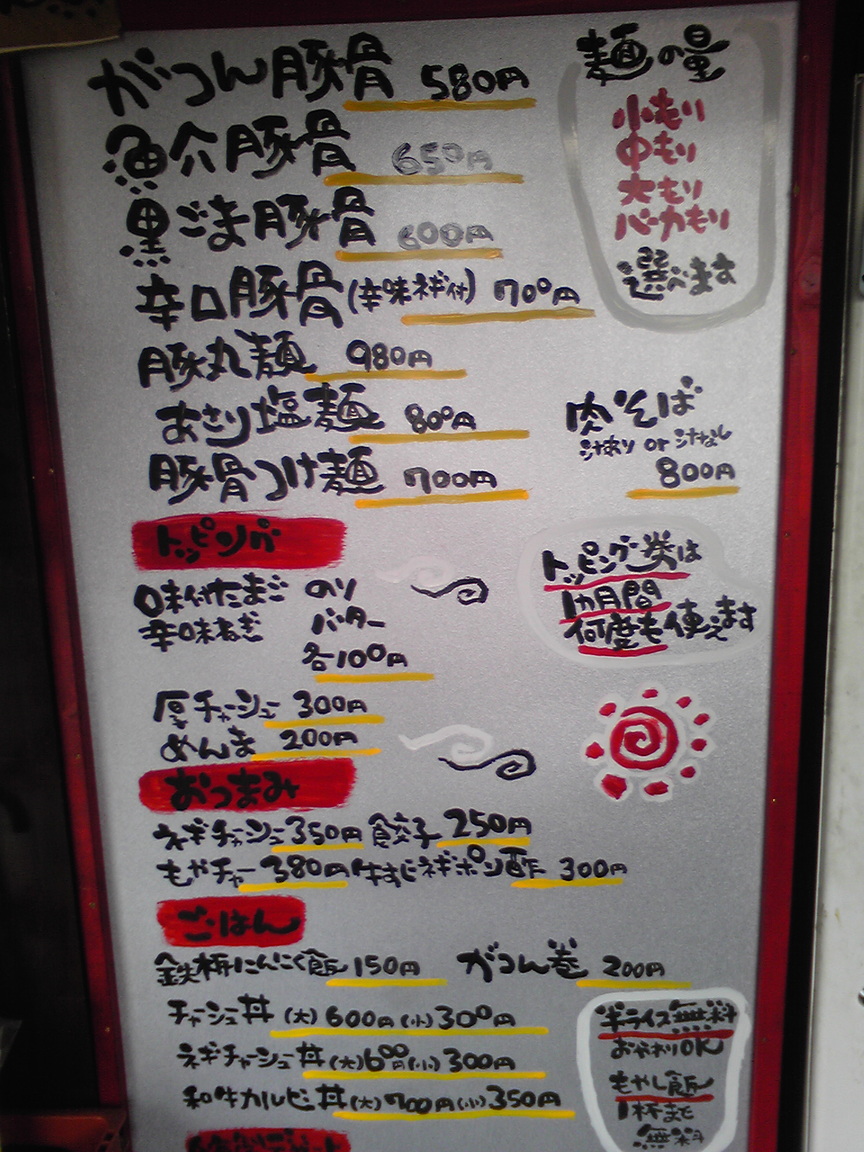 がつん豚骨 580円
魚介豚骨 650円
黒ごま豚骨 600円
辛口豚骨(辛味ネギ付) 700円
豚丸麺 980円
あさり塩麺 800円
豚骨つけ麺 700円
麺の量
小もり
中もり
大もり
バーカもり
選べます
肉そば
汁あり or 汁なし
800円
トッピング
味付たまご のり
辛味ねぎ バター
各100円
厚チャーシュー 300円
めんま 200円
トッピング券は
1ヵ月間
何度も使えます
おつまみ
ネギチャーシュー 350円 餃子 250円
もやチャー 380円 牛すじネギポン酢 300円
ごはん
鉄柄にんにく飯 150円 がつん巻 200円
チャーシュー丼 (大) 600円 (小) 300円
ネギチャーシュー丼 (大) 600円 (小) 300円
和牛カルビ丼 (大) 700円 (小) 350円
半ライス無料
おかわりOK
もやし飯
1杯まで
無料